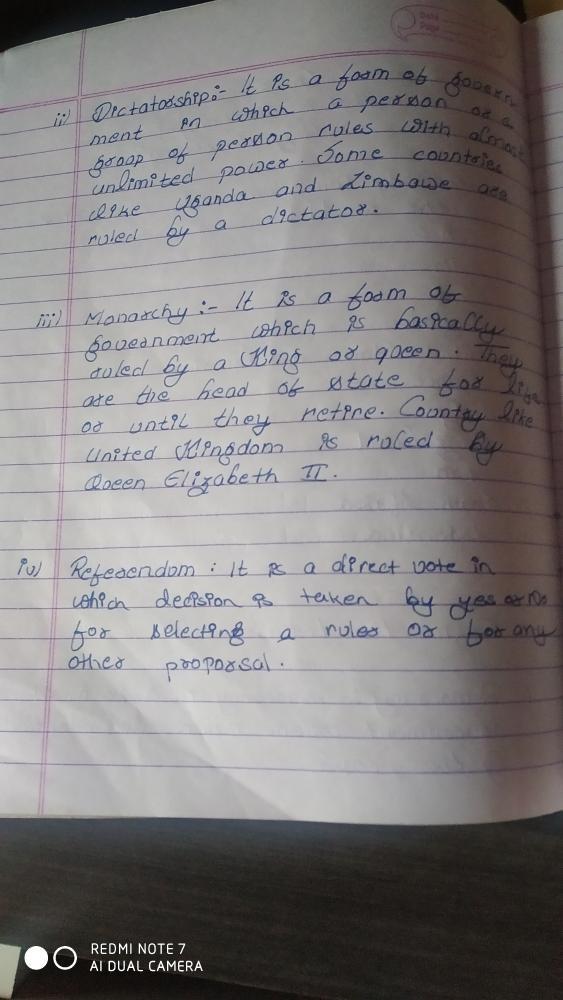 Date
Page
ii) Dictatorship:- It is a form of govern
ment in which a person or a
group of person rules with almost
unlimited power. Some countries
like Uganda and Zimbawe are
ruled by a dictator.
iii) Monarchy :- It is a form of
government which is basically
ruled by a King or queen. They
are the head of state for life
or until they retire. Country like
United Kingdom is ruled by
Queen Elizabeth II.
iv) Referendum : It is a direct vote in
which decision is taken by yes or No
for selecting a ruler or for any
other proporsal.
REDMI NOTE 7
AI DUAL CAMERA